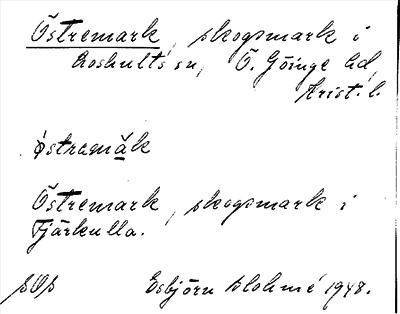 Östremark, skogsmark i
Loshults sn, Ö. Göinge hd,
Krist. l.
östramăk
Östremark, skogsmark i
Fjärkulla.
SOS Esbjörn Blohmé 1948.